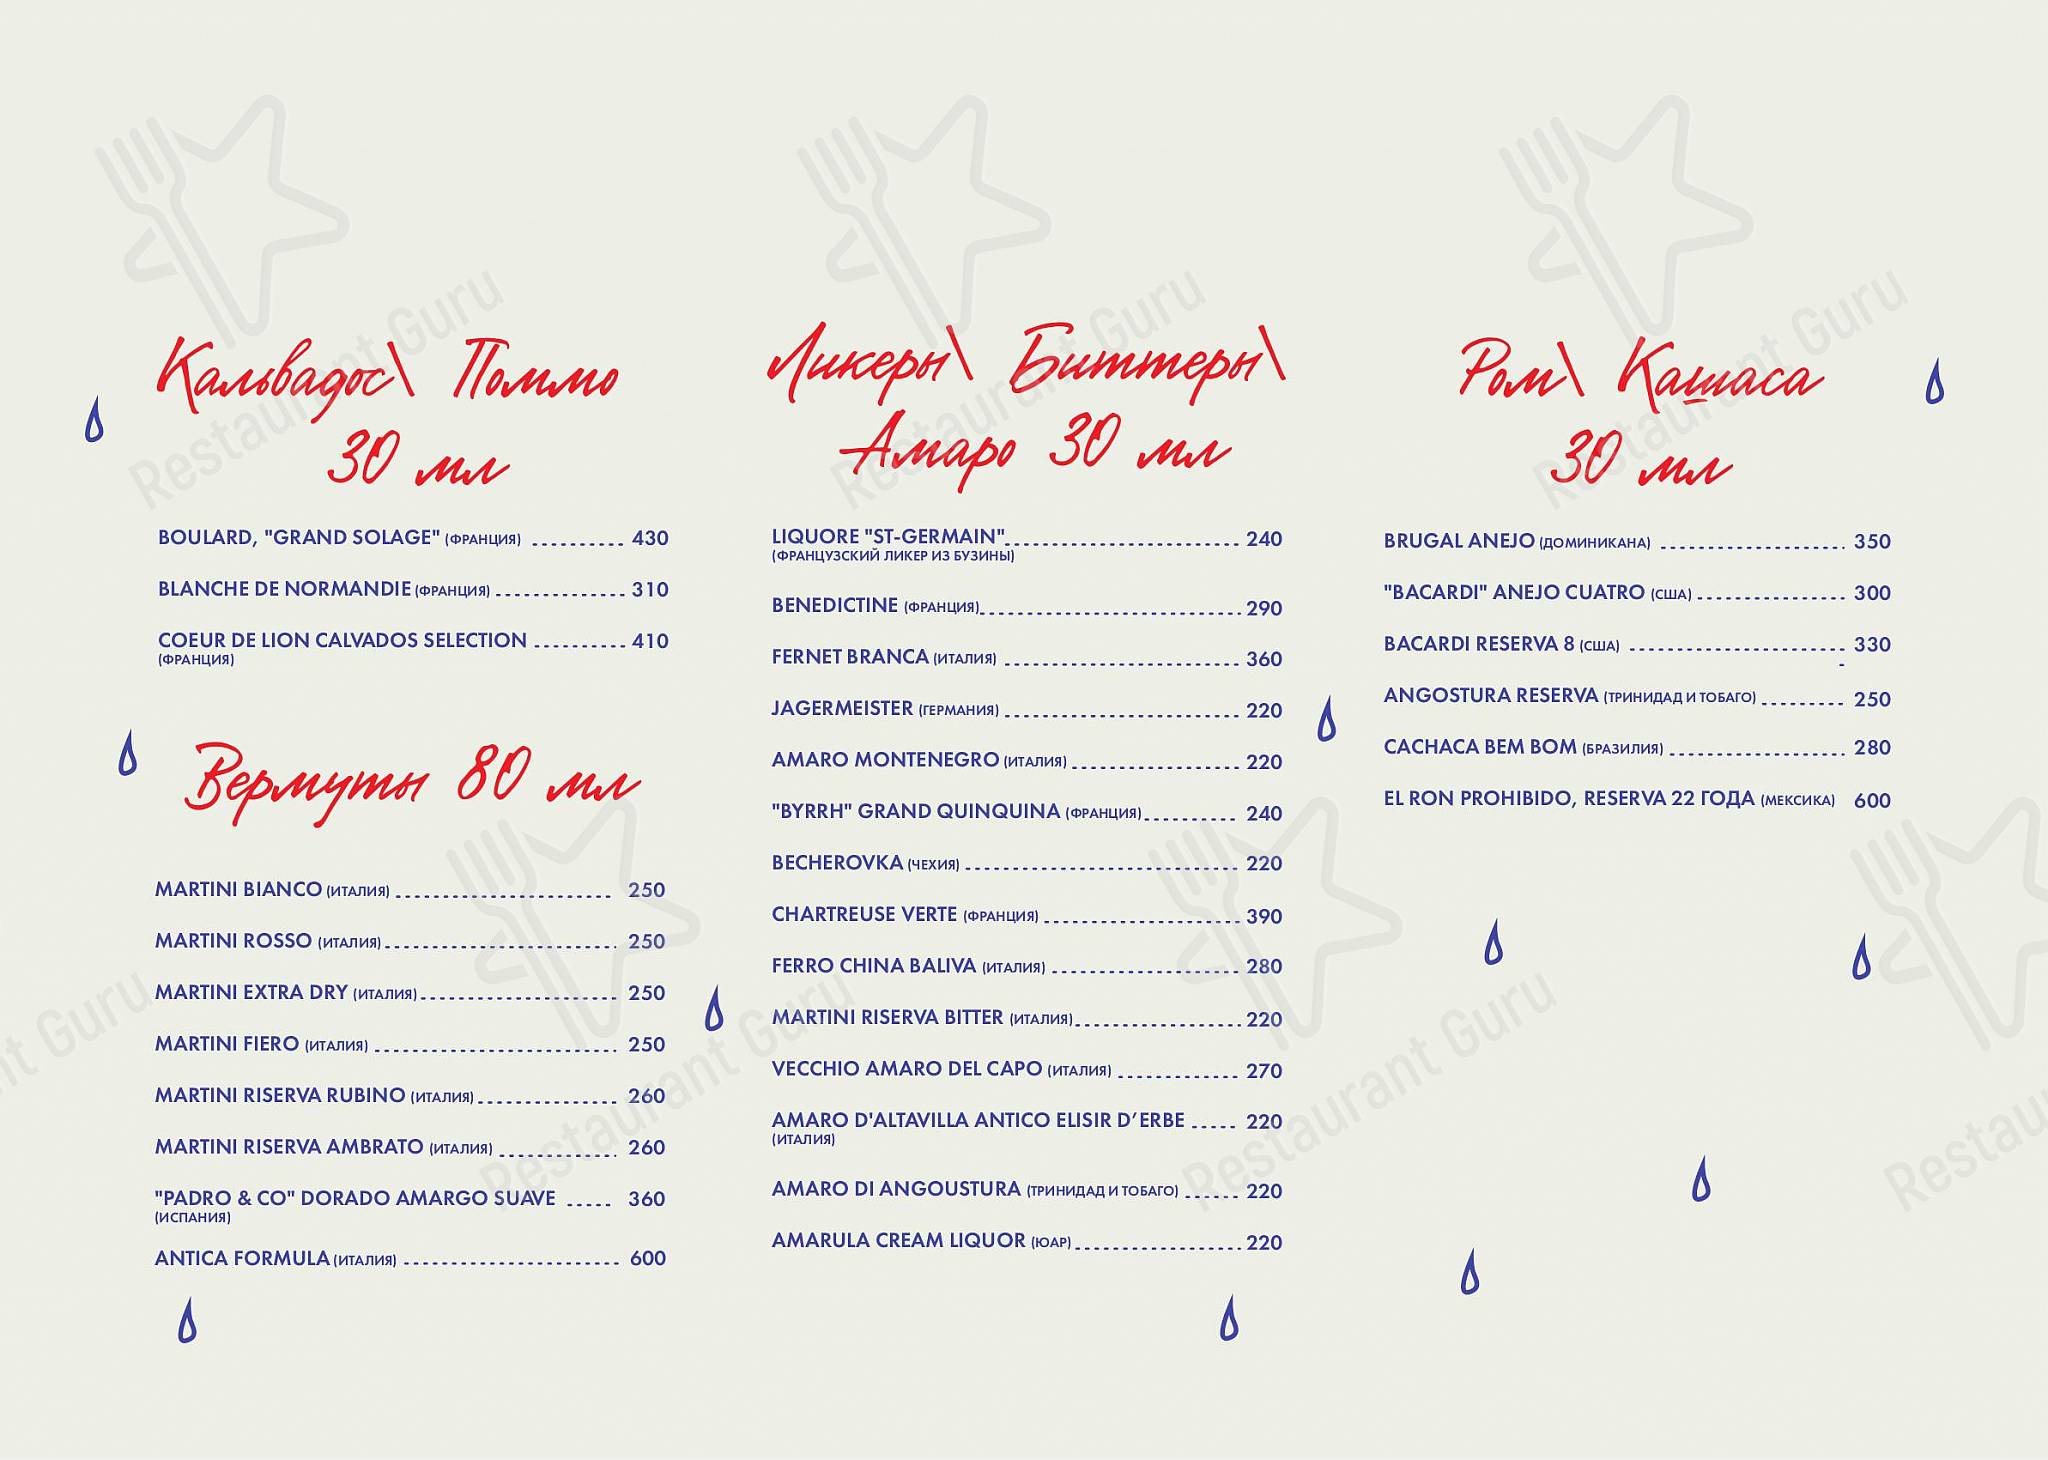 Кальвадос\ Поммо
30 мл
BOULARD, "GRAND SOLAGE" (ФРАНЦИЯ) 430
BLANCHE DE NORMANDIE (ФРАНЦИЯ) 310
COEUR DE LION CALVADOS SELECTION 410
(ФРАНЦИЯ)
Вермуты 80 мл
MARTINI BIANCO (ИТАЛИЯ) 250
MARTINI ROSSO (ИТАЛИЯ) 250
MARTINI EXTRA DRY (ИТАЛИЯ) 250
MARTINI FIERO (ИТАЛИЯ) 250
MARTINI RISERVA RUBINO (ИТАЛИЯ) 260
MARTINI RISERVA AMBRATO (ИТАЛИЯ) 260
"PADRO & CO" DORADO AMARGO SUAVE 360
(ИСПАНИЯ)
ANTICA FORMULA (ИТАЛИЯ) 600
Ликеры\ Биттеры\
Амаро 30 мл
LIQUORE "ST-GERMAIN" 240
(ФРАНЦУЗСКИЙ ЛИКЕР ИЗ БУЗИНЫ)
BENEDICTINE (ФРАНЦИЯ) 290
FERNET BRANCA (ИТАЛИЯ) 360
JAGERMEISTER (ГЕРМАНИЯ) 220
AMARO MONTENEGRO (ИТАЛИЯ) 220
"BYRRH" GRAND QUINQUINA (ФРАНЦИЯ) 240
BECHEROVKA (ЧЕХИЯ) 220
CHARTREUSE VERTE (ФРАНЦИЯ) 390
FERRO CHINA BALIVA (ИТАЛИЯ) 280
MARTINI RISERVA BITTER (ИТАЛИЯ) 220
VECCHIO AMARO DEL CAPO (ИТАЛИЯ) 270
AMARO D'ALTAVILLA ANTICO ELISIR D’ERBE 220
(ИТАЛИЯ)
AMARO DI ANGOUSTURA (ТРИНИДАД И ТОБАГО) 220
AMARULA CREAM LIQUOR (ЮАР) 220
Ром\ Кашаса
30 мл
BRUGAL ANEJO (ДОМИНИКАНА) 350
"BACARDI" ANEJO CUATRO (США) 300
BACARDI RESERVA 8 (США) 330
ANGOSTURA RESERVA (ТРИНИДАД И ТОБАГО) 250
CACHACA BEM BOM (БРАЗИЛИЯ) 280
EL RON PROHIBIDO, RESERVA 22 ГОДА (МЕКСИКА) 600
Restaurant Guru
Restaurant Guru
Restaurant Guru
nt Guru
Restaurant Guru
Restaurant Guru
Restaurant